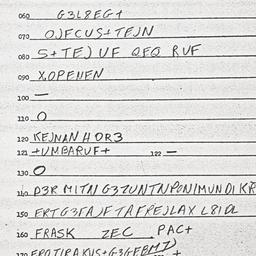 060 G3L8EG+
070 OJFCUS+TEJN
080 S+TEJ UF QFQ RUF
090 X,OPENEN
100 —
110 O
120 KEJNAN HOR3
121 +UMBARUF+ 122 —
130 O
140 D3R MITN G3ZUNTN PONIMUNDI KR
150 ERTG3FAJFTAFREJLAX L8IDL
160 FRASK ZEC PAC+
170 EROTIRAKUS+G3GEBMZI +